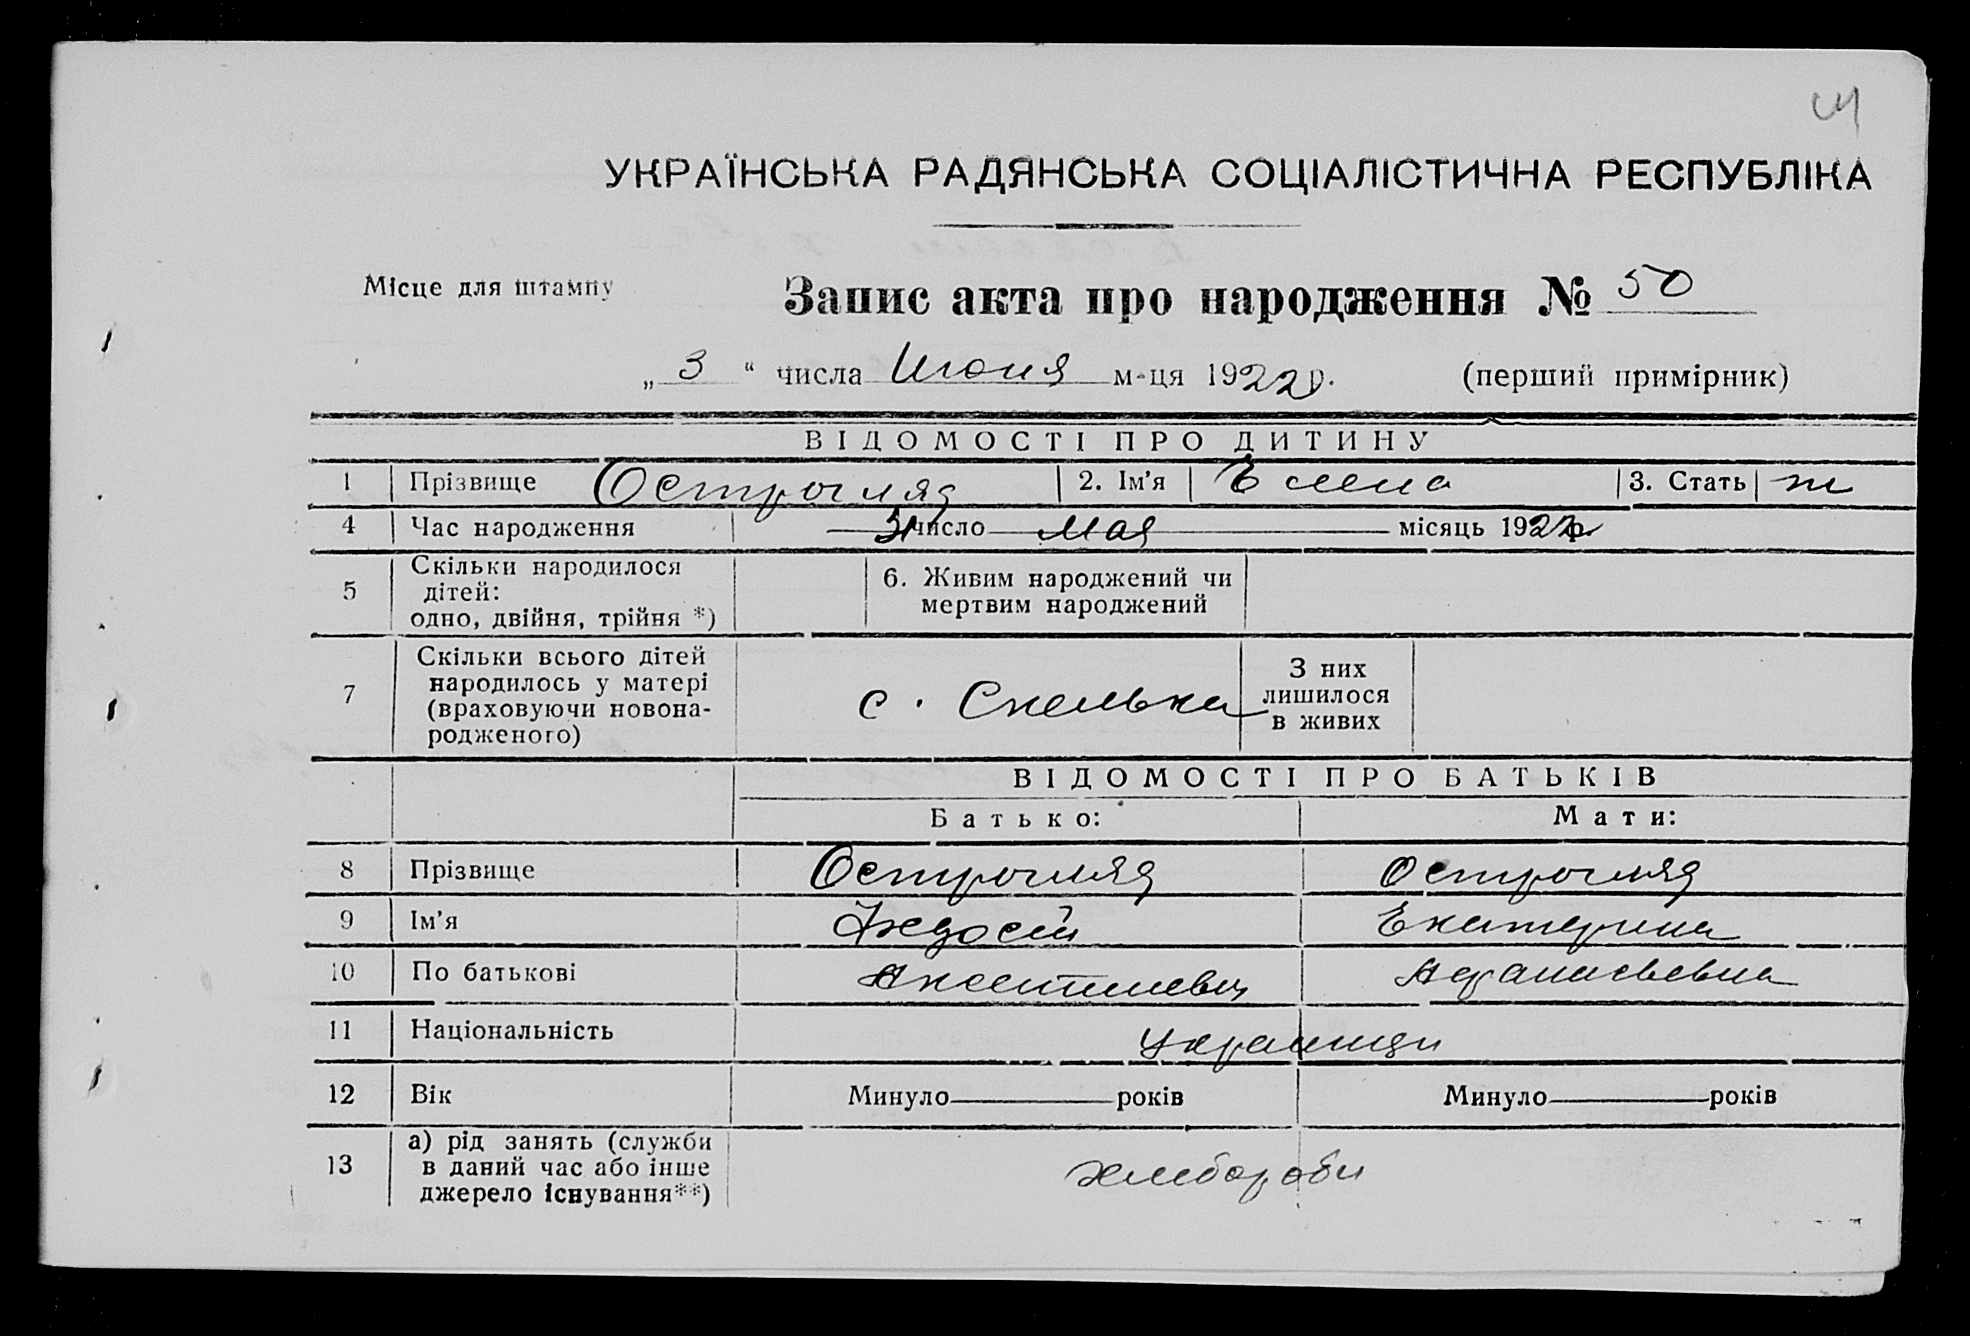 УКРАЇНСЬКА РАДЯНСЬКА СОЦІАЛІСТИЧНА РЕСПУБЛІКА
Місце для штампу
Запис акта про народження № 50
„ 3 “ числа Июня м-ця 1922р. (перший примірник)
ВІДОМОСТІ ПРО ДИТИНУ
1 Прізвище Острогляд 2. Ім’я Елена 3. Стать ж
4 Час народження 31 число мая місяць 1922р.
5 Скільки народилося дітей: одно, двійня, трійня *) 6. Живим народжений чи мертвим народжений
7 Скільки всього дітей народилось у матері (враховуючи новонародженого) с. Скелька З них лишилося в живих
ВІДОМОСТІ ПРО БАТЬКІВ
Батько: Мати:
8 Прізвище Острогляд Острогляд
9 Ім’я Федосий Екатерина
10 По батькові Афанасьевна
11 Національність Украинци
12 Вік Минуло років Минуло років
13 а) рід занять (служби в даний час або інше джерело існування**) хлебороби